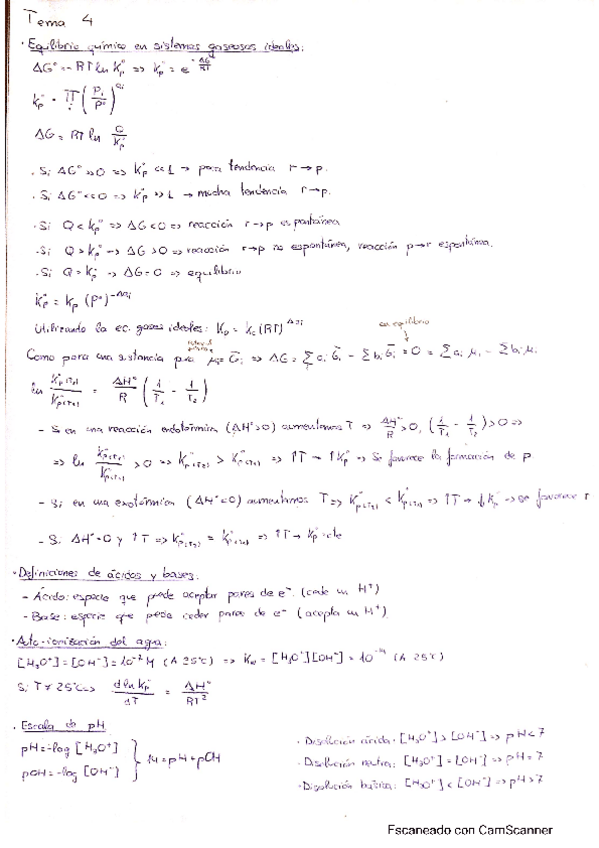 Tema 4
· Equilibrio químico en sistemas gaseosos ideales:
ΔG° = -RT ln Kp° => Kp° = e^(-ΔG°/RT)
Kp° = Π_i (Pi/P°)^ai
ΔG = RT ln Q/Kp°
· Si ΔG° >>0 => Kp° << 1 → poca tendencia r→p.
· Si ΔG° <<0 => Kp° >> 1 → mucha tendencia r→p.
· Si Q < Kp° => ΔG < 0 => reacción r→p espontánea
· Si Q > Kp° → ΔG > 0 => reacción r→p no espontánea, reacción p→r espontánea.
· Si Q = Kp° → ΔG = 0 => equilibrio
Kp° = Kp (P°)^-Δai
Utilizando la ec. gases ideales: Kp = Kc (RT)^Δai
en equilibrio
Como para una sustancia pura μi = Ḡi => ΔG = Σ ai Ḡi - Σ bi Ḡi = 0 = Σ ai μi - Σ bi μi
ln Kp°(T2)/Kp°(T1) = ΔH°/R (1/T1 - 1/T2)
- Si en una reacción endotérmica (ΔH°>0) aumentamos T => ΔH°/R > 0, (1/T1 - 1/T2) > 0 =>
=> ln Kp°(T2)/Kp°(T1) > 0 => Kp°(T2) > Kp°(T1) => ↑T → ↑Kp° → Se favorece la formación de p.
- Si en una exotérmica (ΔH°<0) aumentamos T => Kp°(T2) < Kp°(T1) => ↑T → ↓Kp° → se favorece r
- Si ΔH°=0 y ↑T => Kp°(T2) = Kp°(T1) => ↑T → Kp° cte
· Definiciones de ácidos y bases:
- Ácido: especie que puede aceptar pares de e⁻. (cede un H⁺)
- Base: especie que puede ceder pares de e⁻ (acepta un H⁺)
· Auto-ionización del agua:
[H₃O⁺] = [OH⁻] = 10⁻⁷ M (A 25°C) => Kw = [H₃O⁺][OH⁻] = 10⁻¹⁴ (A 25°C)
Si T ≠ 25°C => d ln Kp°/dT = ΔH°/RT²
· Escala de pH
pH = -log [H₃O⁺]
pOH = -log [OH⁻]
} 14 = pH + pOH
· Disolución ácida: [H₃O⁺] > [OH⁻] => pH < 7
· Disolución neutra: [H₃O⁺] = [OH⁻] => pH = 7
· Disolución básica: [H₃O⁺] < [OH⁻] => pH > 7
Escaneado con CamScanner